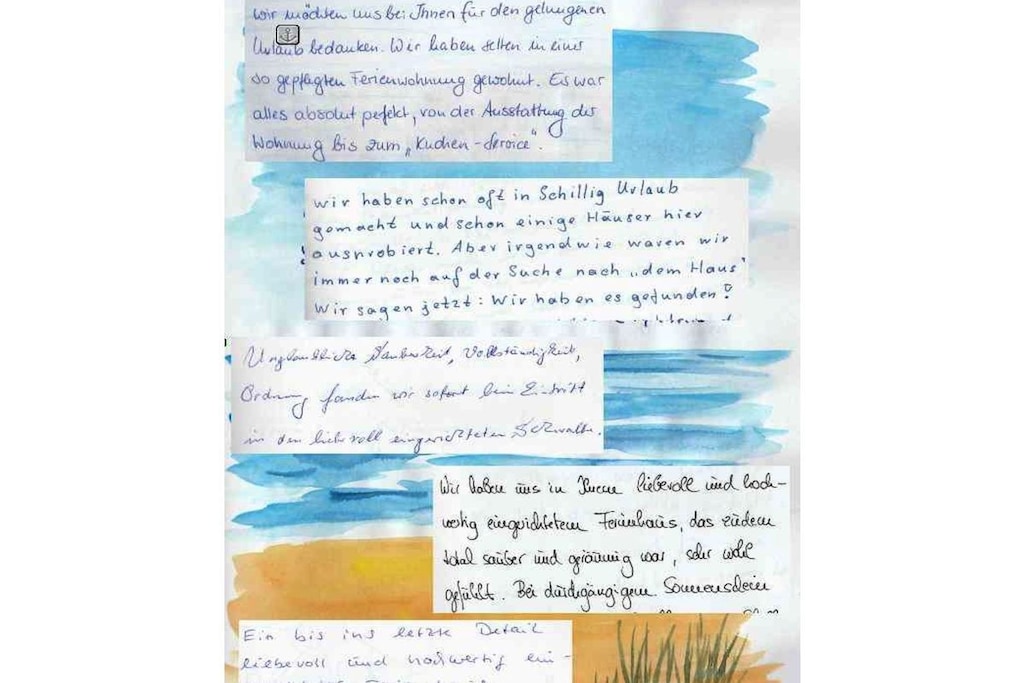 wir möchten uns bei Ihnen für den gelungenen
Urlaub bedanken. Wir haben selten in einer
so gepflegten Ferienwohnung gewohnt. Es war
alles absolut perfekt, von der Ausstattung der
Wohnung bis zum „Kuchen-Service“.
wir haben schon oft in Schillig Urlaub
gemacht und schon einige Häuser hier
ausprobiert. Aber irgendwie waren wir
immer noch auf der Suche nach „dem Haus“
Wir sagen jetzt: Wir haben es gefunden!
Unglaubliche Sauberkeit, Vollständigkeit,
Ordnung fanden wir sofort beim Eintritt
in den liebevoll eingerichteten
Wir haben uns in Ihrem liebevoll und hoch-
wertig eingerichtetem Ferienhaus, das zudem
total sauber und geräumig war, sehr wohl
gefühlt. Bei durchgängigem Sonnenschein
Ein bis ins letzte Detail
liebevoll und hochwertig ein-